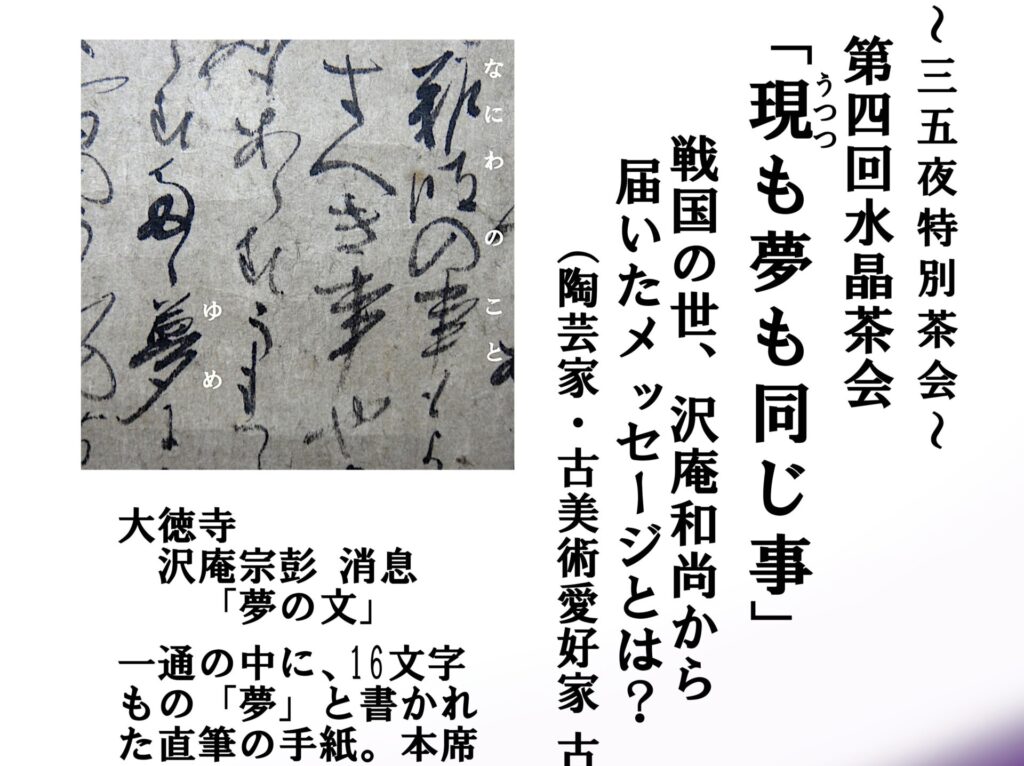 ～三五夜特別茶会～
第四回水晶茶会
「現も夢も同じ事」
うつつ
戦国の世、沢庵和尚から
届いたメッセージとは？
（陶芸家・古美術愛好家 古
なにわのこと
難波の事
すへき事也
ゆめ
夢
大徳寺
沢庵宗彭 消息
「夢の文」
一通の中に、16文字
もの「夢」と書かれ
た直筆の手紙。本席